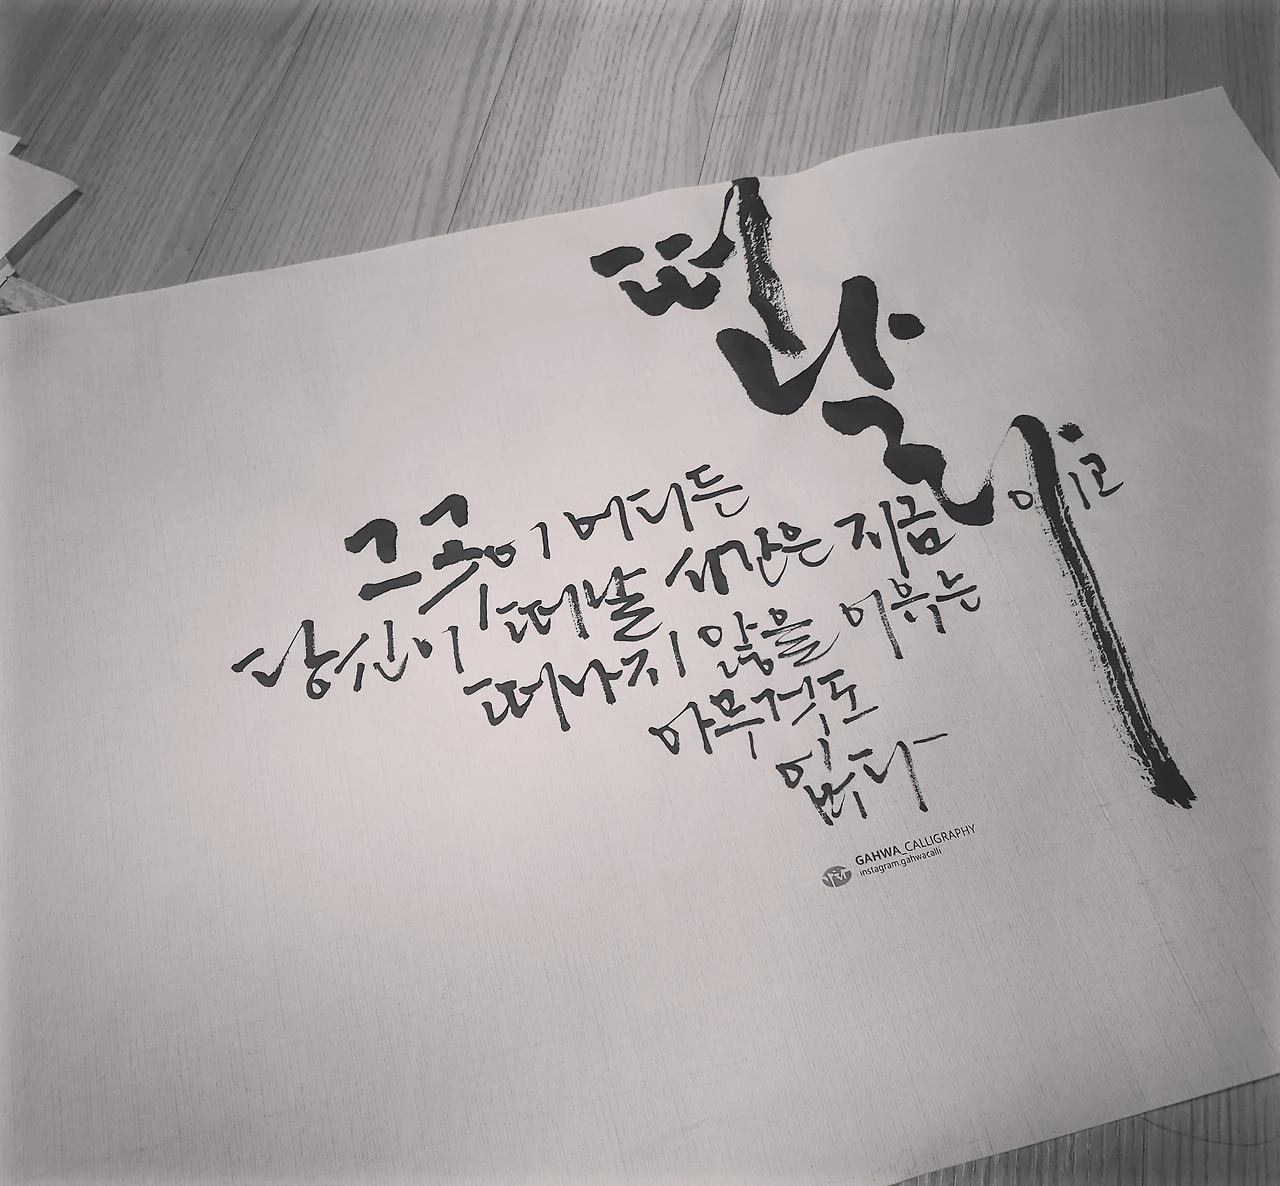 떠나라
그곳이 어디든
당신이 떠날 시간은 지금이고
떠나지 않을 이유는
아무것도
없다
GAHWA_CALLIGRAPHY
instagram.gahwacalli